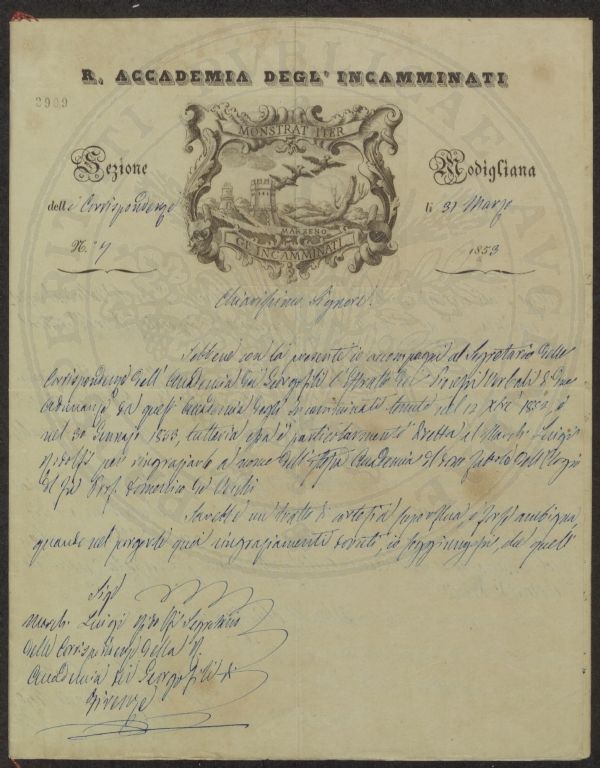 R. ACCADEMIA DEGL' INCAMMINATI
2909
MONSTRAT ITER
MARZENO
GL' INCAMMINATI
Sezione
delle Corrispondenze
N. 7
Modigliana
li 31 Marzo
1853
Chiarissimo Signore!
Sebbene con la presente io accompagni al Segretario delle
Corrispondenze dell' Accademia dei Georgofili l'Estratto dei Processi Verbali di due
Adunanze di quest' Accademia degli Incamminati tenute nel 12 Xbre 1852, e
nel 30 Gennajo 1853, tuttavia essa è particolarmente diretta al March. Luigi
Ridolfi per ringraziarlo a nome dell' stessa Accademia del dono fattole dell' Elogio
del fu Prof. Domenico
Sarebbe un tratto di cortesia superflua e forse ambigua,
quando nel porgerle qua ringraziamenti dovuti, io soggiungessi, che quell'
Sigr
March. Luigi Ridolfi Segretario
delle Corrispondenze della R.
Accademia dei Georgofili di
Firenze